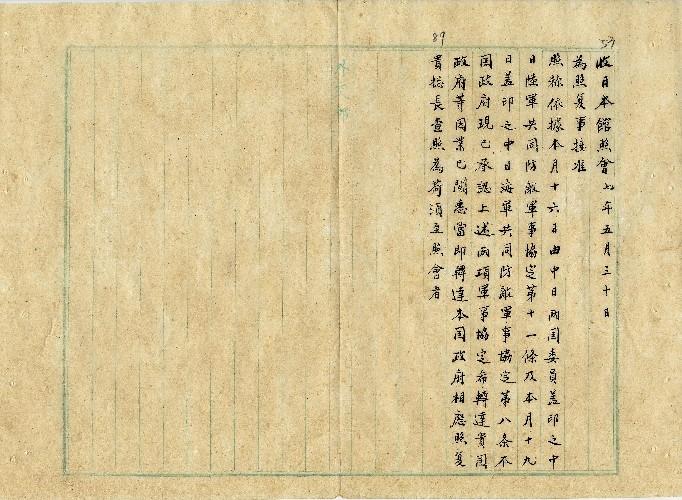 57
87
收日本館照會 七年五月三十日
為照复事接准
照称依據本月十六日由中日兩国委員盖印之中
日陸軍共同防敵軍事協定第十一條及本月十九
日盖印之中日海軍共同防敵軍事協定第八条不
国政府現已承認上述兩項軍事協定希轉達貴国
政府等因業已閱悉當即轉達本国政府相應照复
貴總長查照為荷須至照會者